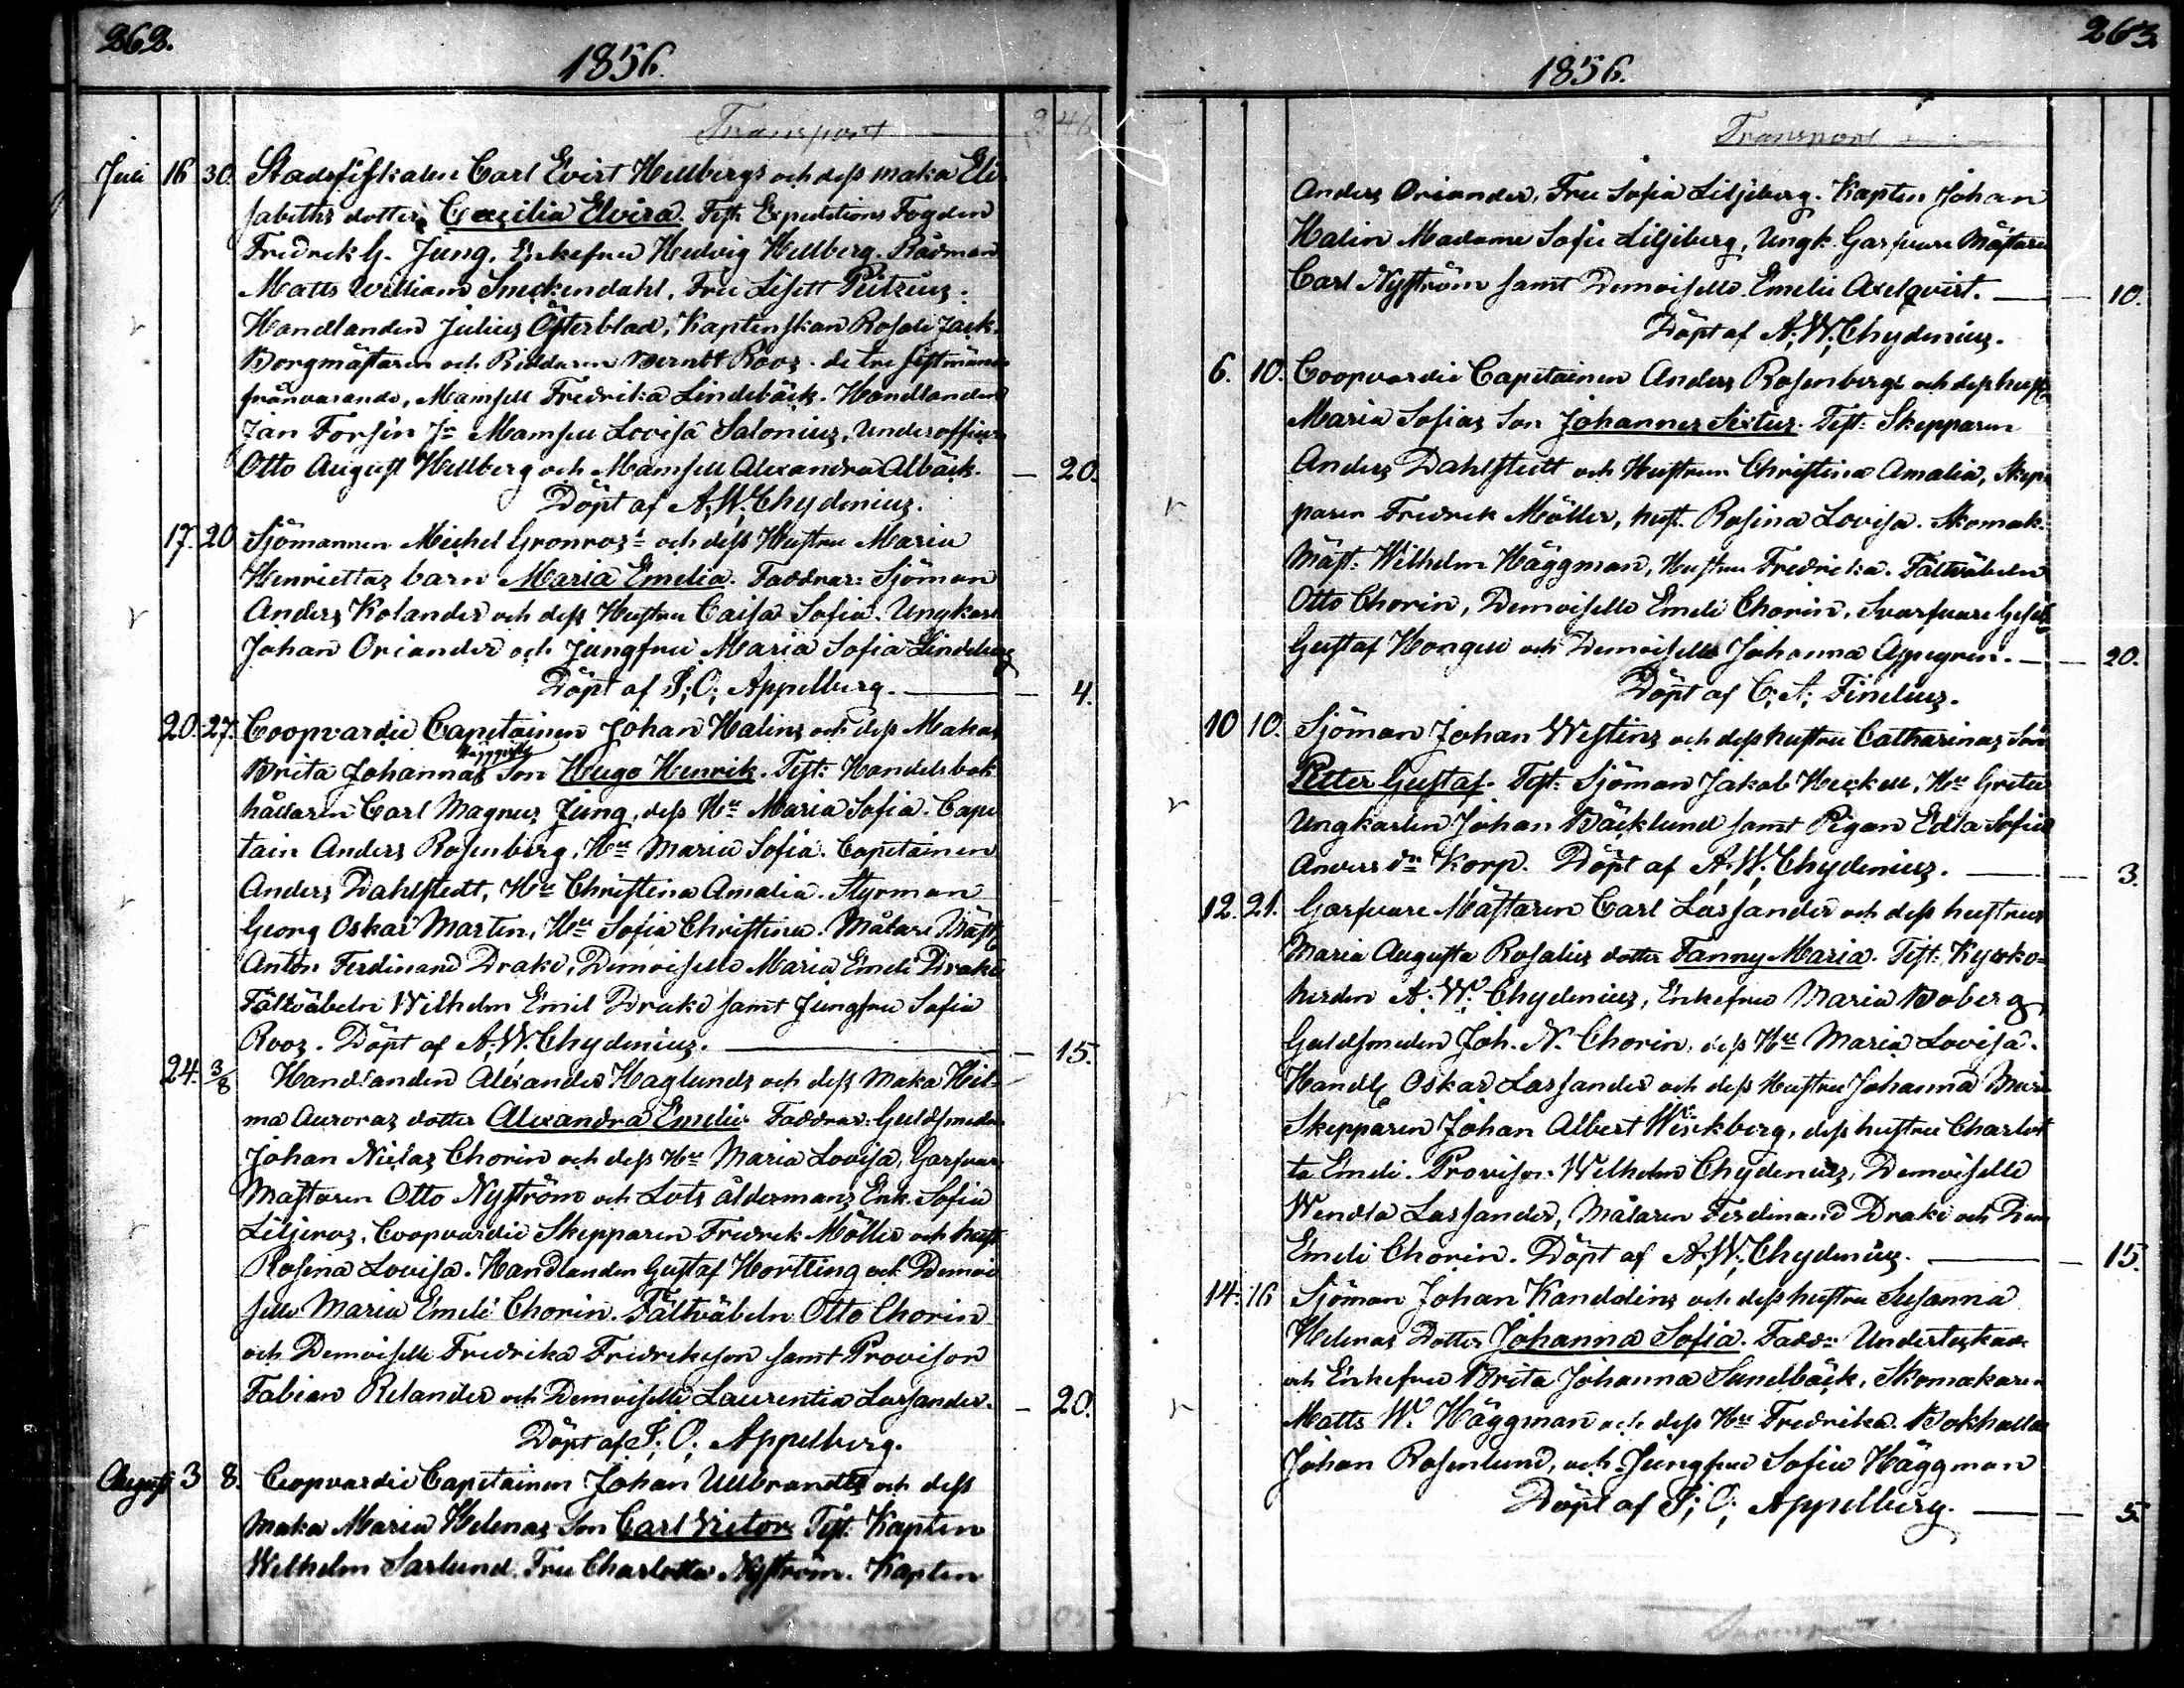 262.
1856.
Transport
Juli 16 30. Stadsfiskalen Carl Evert Hellbergs och dess maka Eli-
sabeths dotter Cæcilia Elvira. Test: Expeditions Fogden
Fredrek G. Jung, Enkefru Hedvig Hellberg. Rådman
Matts William Smickendahl, Fru Lisett
Handlanden Julius Österblad, Kaptenskan Rosali Jack.
Borgmästaren och Riddaren Berndt Roos. de tre sistnämnde
frånvarande, Mamsell Fredrika Lindebäck. Handlanden
Jan Forsén Jr Mamsell Lovisa Salonius, Underofficern
Otto August Hellberg och Mamsell Alexandra Albäck. — 20.
Döpt af A. W. Chydenius.
17. 20 Sjömannen Michel Gronroos's och dess Hustru Maria
Henriettas barn Maria Emelia. Faddrar: Sjöman
Anders Kolander och dess Hustru Caisa Sofia. Ungkarl
Johan Oriander och Jungfru Maria Sofia Lindeberg
Döpt af I. O. Appelberg. — 4.
20. 27. Coopvardie Capitainen Johan Halins och dess Makas
Häggqvist
Brita Johannas Son Hugo Henrik. Test: Handelsbok
hållaren Carl Magnus Jung, dess Hu Maria Sofia. Capi
tain Anders Rosenberg, Hu Maria Sofia. Capitainen
Anders Dahlstedt, Hu Christina Amalia. Styrman
Georg Oskar Marten, Hu Sofia Christina. Målare Mäst
Anton Ferdinand Drake, Demoiselle Maria Emeli Drake
Fältväbeln Wilhelm Emil Drake samt Jungfru Sofia
Roos. Döpt af A. W. Chydenius. — 15.
24. 3/8 Handlanden Alexander Haglunds och dess maka Hil-
ma Auroras dotter Alexandra Emelie. Faddrar: Guldsmeden
Johan Niclas Chorin och dess Hu Maria Lovisa, Garfvar
Mästaren Otto Nyström och Lots åldermans Enk. Sofia
Liljeros, Coopvardie Skepparen Fredrek Möller och hust
Rosina Lovisa. Handlanden Gustaf Hortling och Demoi
selle Maria Emeli Chorin. Fältväbeln Otto Chorin
och Demoiselle Fredrika Fredrekson samt Provisor
Fabian Relander och Demoiselle Laurentia Lassander. — 20.
Döpt af I. O. Appelberg.
Augusti 3 8. Coopvardie Capitainen Johan Ullbrandts och dess
maka Maria Helenas Son Carl Victor. Test: Kapten
Wilhelm Sarlund. Fru Charlotta Nyström. Kapten
263
1856.
Transport
Anders Oriander, Fru Sofia Liljeberg. Kapten Johan
Halin Madame Sofie Liljeberg, Ungk. Garfvare Mästaren
Carl Nyström samt Demoiselle Emelie Axelqvist. — 10.
Döpt af A. W. Chydenius.
6. 10. Coopvardie Capitainen Anders Rosenbergs och dess hustr
Maria Sofias Son Johannes Sixtus. Test: Skepparen
Anders Dahlstedt och Hustrun Christina Amalia, Skep-
paren Fredrek Möller, hust. Rosina Lovisa. Skomak.
Mäst: Wilhelm Häggman, Hustru Fredrika. Fältväbeln
Otto Chorin, Demoiselle Emeli Chorin, Svarfvare Gesell
Gustaf Hongell och Demoiselle Johanna Appegren. — 20.
Döpt af C. A. Finelius.
10 10. Sjöman Johan Westins och dess hustru Catharinas Son
Petter Gustaf. Test: Sjöman Jakob Heckell, Hu Greta
Ungkarlen Johan Bäcklund samt Pigan Edla Sofia
Anders dr Korp. Döpt af A. W. Chydenius. — 3.
12. 21. Garfvare Mästaren Carl Lassander och dess hustrus
Maria Augusta Rosalias dotter Fanny Maria. Test: Kyrko-
herden A. W. Chydenius, Enkefru Maria Boberg
Guldsmeden Joh. N. Chorin, dess Hu Maria Lovisa.
Handl Oskar Lassander och dess Hustru Johanna Mari
Skepparen Johan Albert Winkberg, dess hustru Charlot
ta Emeli. Provisor Wilhelm Chydenius, Demoiselle
Wendla Lassander, Målaren Ferdinand Drake och Dem
Emeli Chorin. Döpt af A. W. Chydenius. — 15.
14. 16 Sjöman Johan Kanddins och dess hustru Susanna
Helenas Dotter Johanna Sofia. Faddr
och Enkefru Brita Johanna Sundbäck, Skomakaren
Matts W. Häggman och dess Hu Fredrika. Bokhållar
Johan Rosenlund, och Jungfru Sofia Häggman
Döpt af I. O. Appelberg. — 5.
Transport